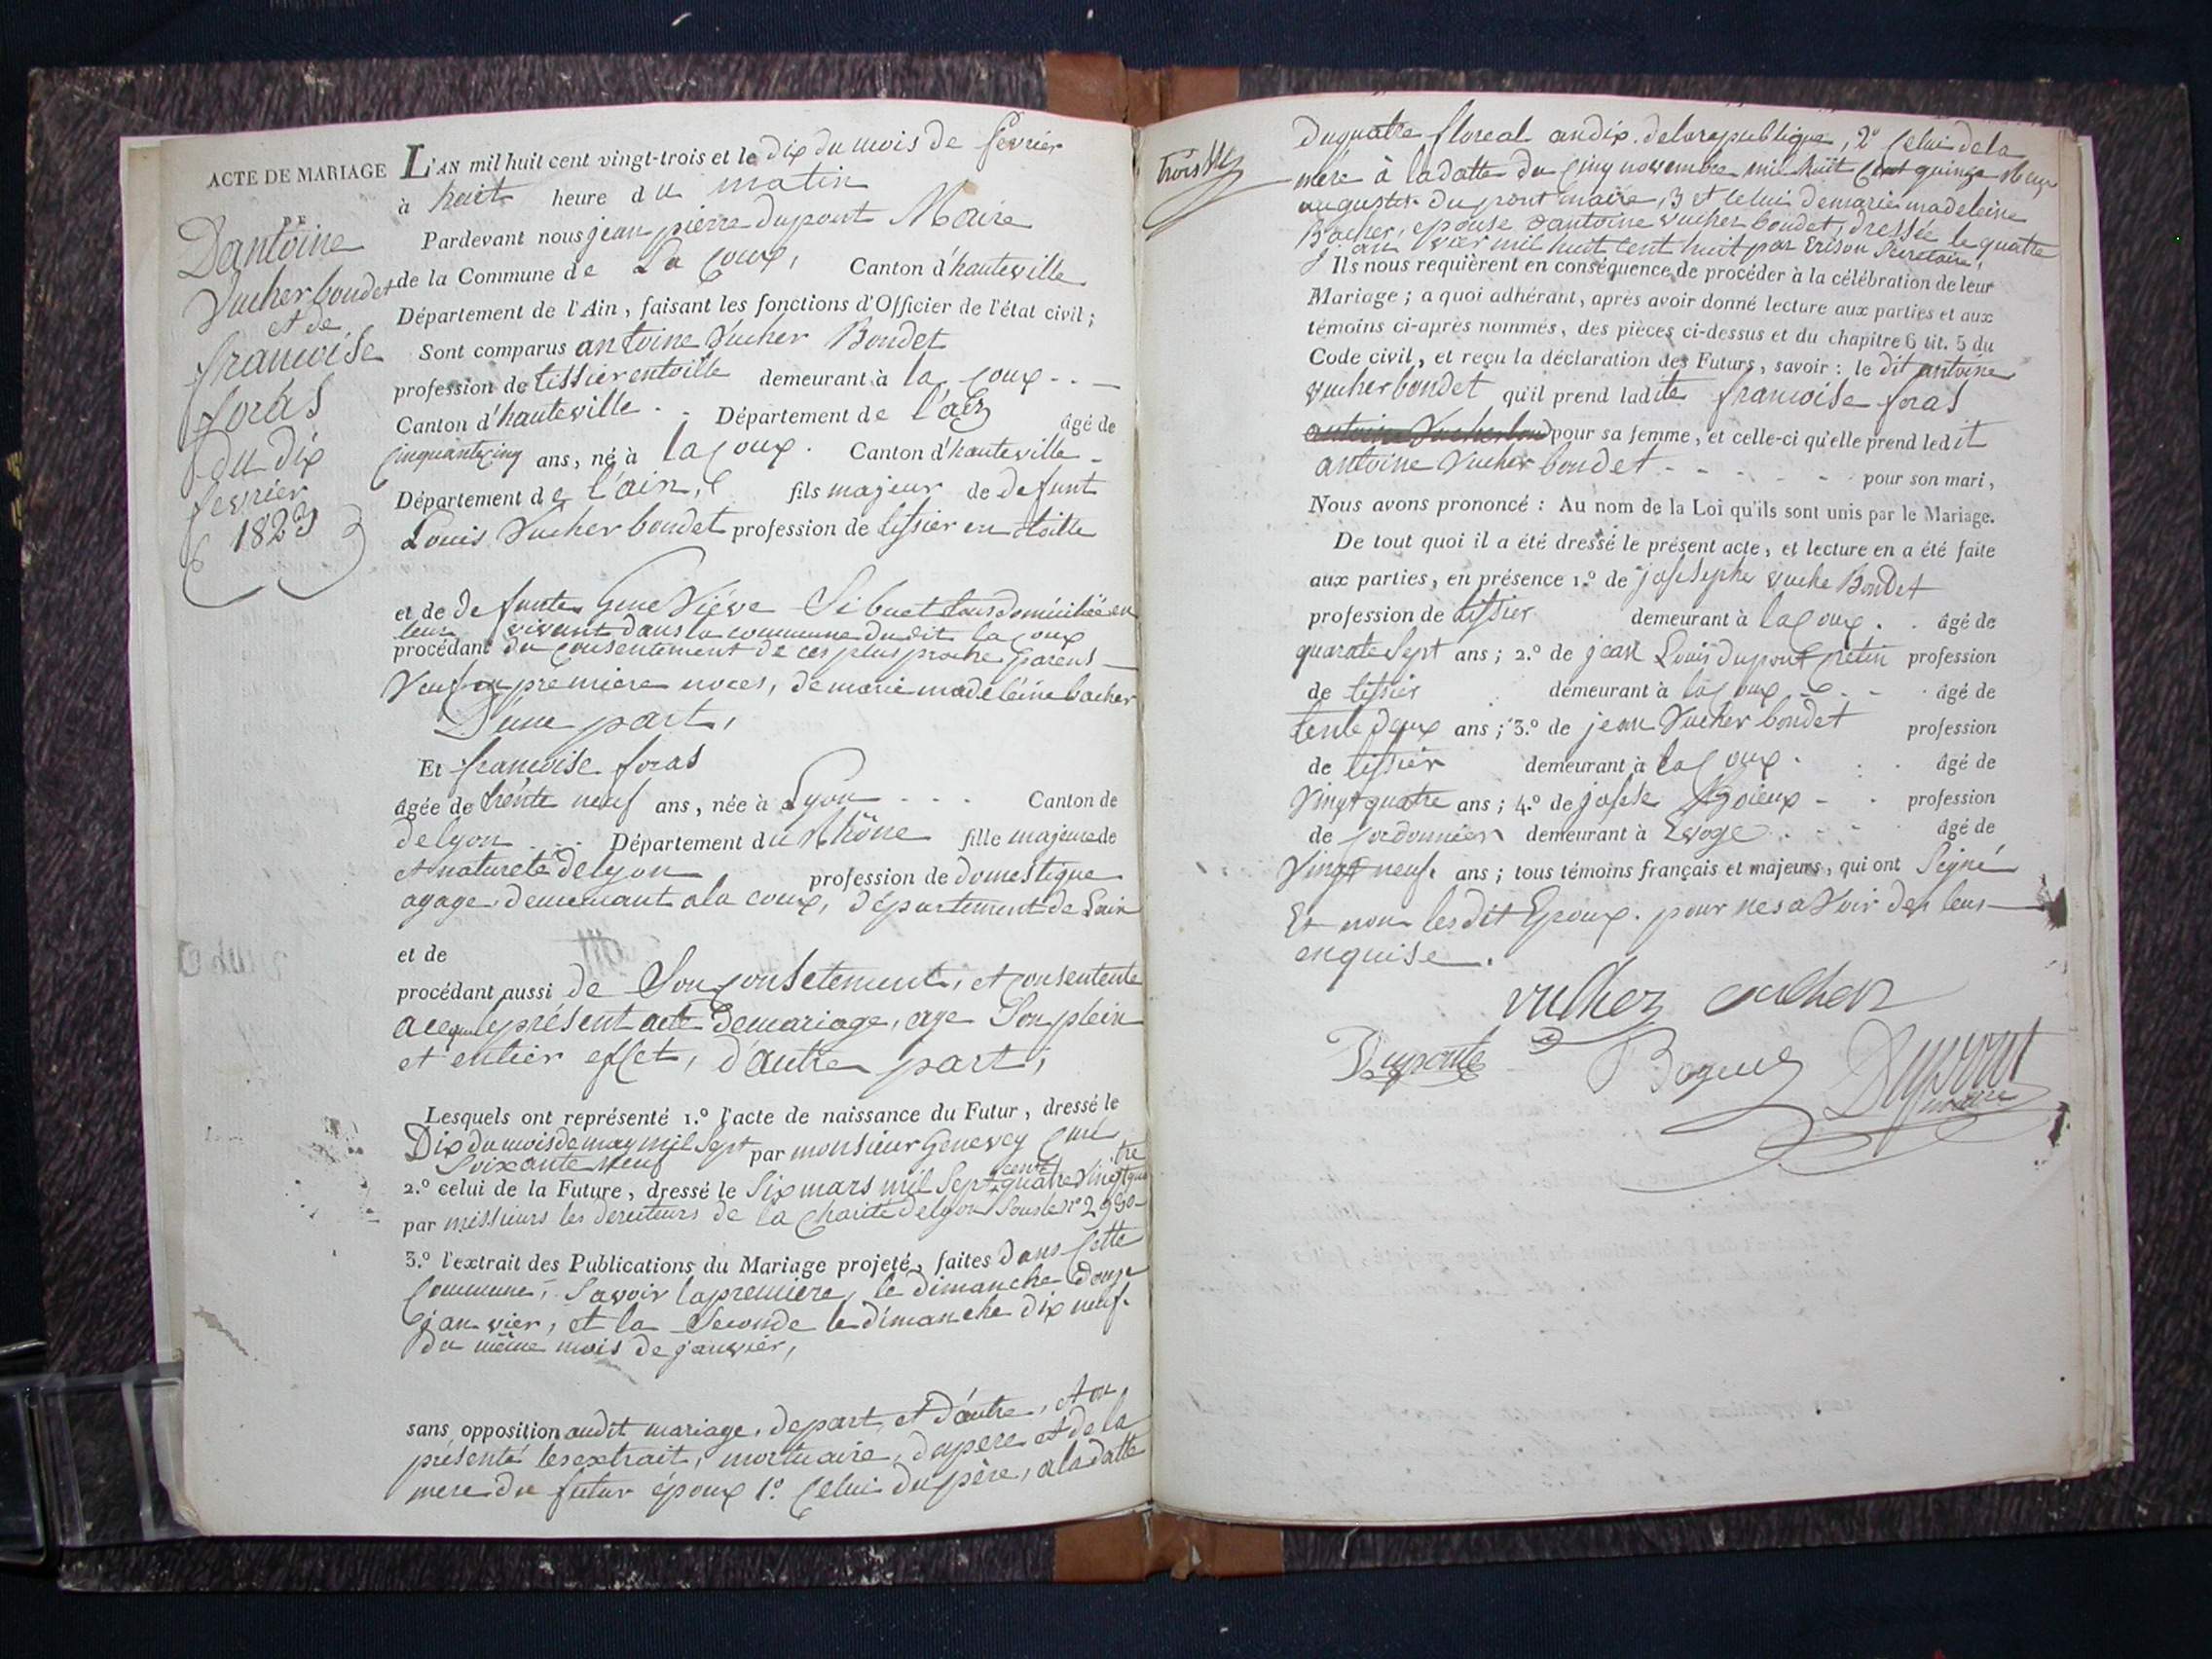 ACTE DE MARIAGE
DE
D'antoine
Vucher boudet
et de
francoise
foras
du dix
fevrier
1823
L'AN mil huit cent vingt-trois et le dix du mois de fevrier
à huit heure du matin
Pardevant nous jean pierre dupont Maire
de la Commune de La Coux, Canton d'hauteville
Département de l'Ain, faisant les fonctions d'Officier de l'état civil;
Sont comparus antoine Vucher Boudet
profession de tissier entoille demeurant à la coux
Canton d'hauteville Département de l'ain âgé de
cinquantecinq ans, né à lacoux. Canton d'hauteville
Département de l'ain, fils majeur de defunt
Louis Vucher boudet profession de tissier en toille
et de defunte GeneViéve Sibuet tous domiciliée en
leur vivant dans la commune dudit lacoux
procédant du consentement de ces plus proche parens
Veuf en premiere noces, de marie madeleine bacher
D'une part,
Et francoise foras
âgée de trente neuf ans, née à Lyon Canton de
de lyon Département du Rhône fille majeure de
et naturele de lyon profession de domestique
agage demeurant ala coux, département de Lain
et de
procédant aussi de Son consetement, et consentente
aceque le présent acte de mariage, aye Son plein
et entier effet, d'autre part,
Lesquels ont représenté 1.º l'acte de naissance du Futur, dressé le
Dix du mois de may mil Sept par monsieur Genevey Curé
Soixante Neuf
2.º celui de la Future, dressé le Six mars mil Sept cent quatre Vingt quatre
par messieurs les derecteurs de la Charité de lyon Sous le nº 2950
3.º l'extrait des Publications du Mariage projeté, faites dans Cette
Commune, Savoir la premiere, le dimanche douze
janvier, et la Seconde le dimanche dix neuf.
du même mois de janvier,
sans opposition audit mariage, depart, et d'autre, et on
présenté les extrait, mortuaire, du pere et de la
mere du futur époux 1.º Celui du père, a la datte
trois
du quatre floreal an dix. de la republique, 2º Celui de la
mère à la datte du Cinq novembre mil huit Cent quinze
augustin dupront maire, 3 et celui de marie madeleine
Bacher, epouse d'antoine vucher boudet, dressée le quatre
jan vier mil huit cent huit par Secretaire,
Ils nous requièrent en conséquence de procéder à la célébration de leur
Mariage; a quoi adhérant, après avoir donné lecture aux parties et aux
témoins ci-après nommés, des pièces ci-dessus et du chapitre 6 tit. 5 du
Code civil, et reçu la déclaration des Futurs, savoir: le dit antoine
vucher boudet qu'il prend ladite francoise foras
antoine Vucher boud pour sa femme, et celle-ci qu'elle prend ledit
antoine Vucher boudet pour son mari,
Nous avons prononcé: Au nom de la Loi qu'ils sont unis par le Mariage.
De tout quoi il a été dressé le présent acte, et lecture en a été faite
aux parties, en présence 1.º de josephe vuche Boudet
profession de tissier demeurant à lacoux. âgé de
quarate Sept ans; 2.º de jean Louis dupont pretin profession
de tissier demeurant à lacoux âgé de
tente deux ans; 3.º de jean Vucher boudet profession
de tissier demeurant à lacoux. âgé de
Vingt quatre ans; 4.º de joseph profession
de cordonnier demeurant à Evoge âgé de
Vingt neuf. ans; tous témoins français et majeurs, qui ont Signé
Et non les dit Epoux. pour ne savoir de leur
enquise.
vucher vucher
Duponte Dupont
maire